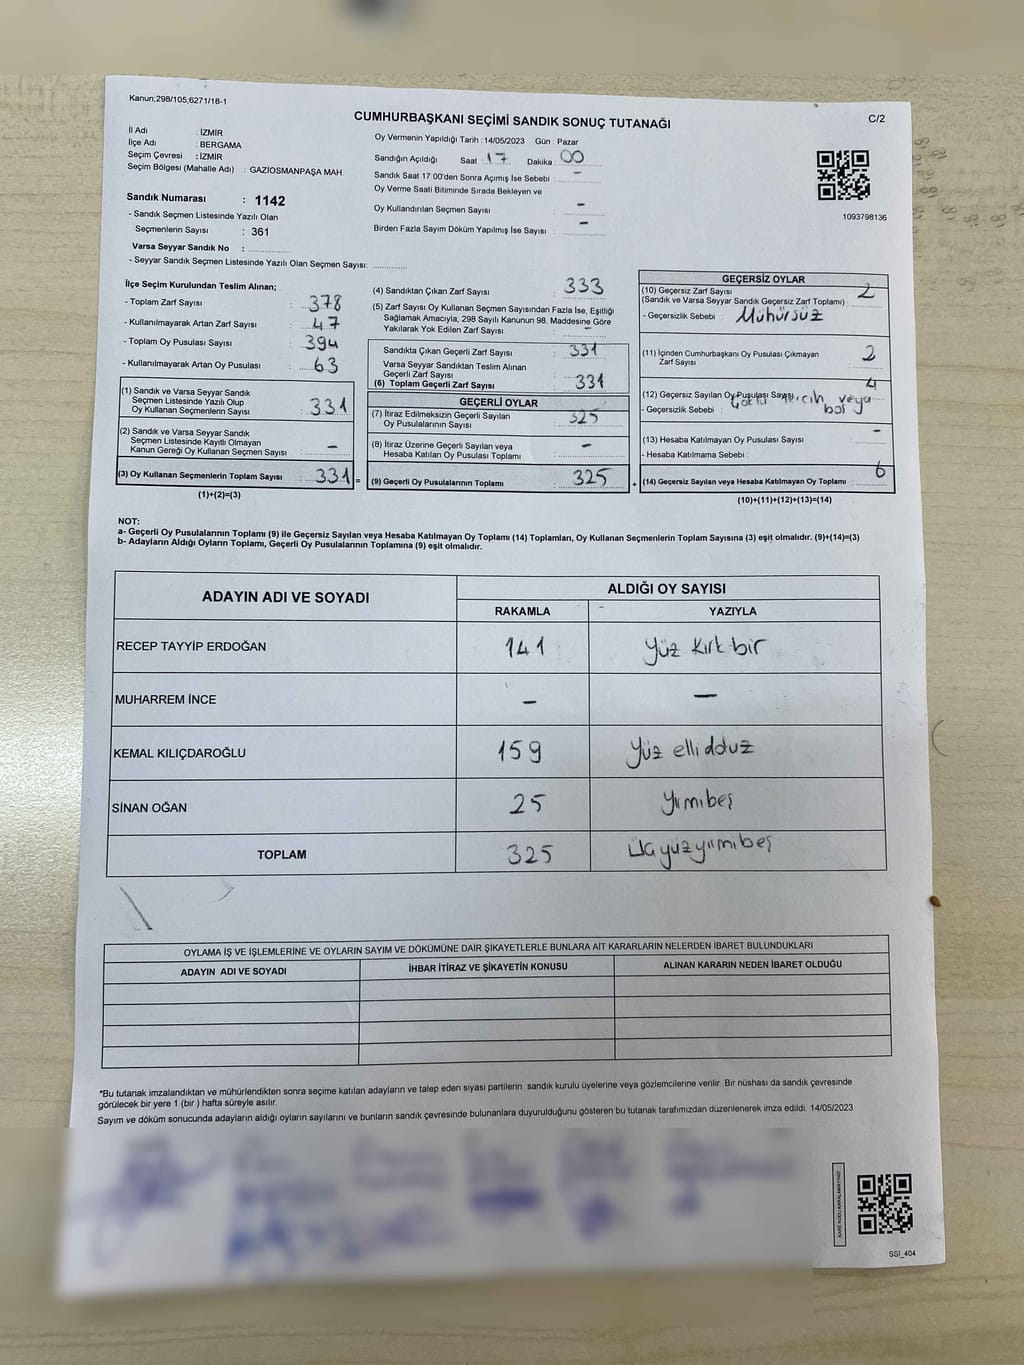 Kanun;298/105,6271/18-1
C/2
CUMHURBAŞKANI SEÇİMİ SANDIK SONUÇ TUTANAĞI
İl Adı : İZMİR
İlçe Adı : BERGAMA
Seçim Çevresi : İZMİR
Seçim Bölgesi (Mahalle Adı) : GAZİOSMANPAŞA MAH.
Sandık Numarası : 1142
- Sandık Seçmen Listesinde Yazılı Olan
Seçmenlerin Sayısı : 361
Varsa Seyyar Sandık No :
- Seyyar Sandık Seçmen Listesinde Yazılı Olan Seçmen Sayısı:
Oy Vermenin Yapıldığı Tarih : 14/05/2023 Gün : Pazar
Sandığın Açıldığı Saat : 17 Dakika : 00
Sandık Saat 17:00'den Sonra Açımış İse Sebebi : -
Oy Verme Saati Bitiminde Sırada Bekleyen ve
Oy Kullandırılan Seçmen Sayısı : -
Birden Fazla Sayım Döküm Yapılmış İse Sayısı : -
1093798136
İlçe Seçim Kurulundan Teslim Alınan;
- Toplam Zarf Sayısı : 378
- Kullanılmayarak Artan Zarf Sayısı : 47
- Toplam Oy Pusulası Sayısı : 394
- Kullanılmayarak Artan Oy Pusulası : 63
(1) Sandık ve Varsa Seyyar Sandık
Seçmen Listesinde Yazılı Olup
Oy Kullanan Seçmenlerin Sayısı : 331
(2) Sandık ve Varsa Seyyar Sandık
Seçmen Listesinde Kayıtlı Olmayan
Kanun Gereği Oy Kullanan Seçmen Sayısı : -
(3) Oy Kullanan Seçmenlerin Toplam Sayısı : 331 =
(1)+(2)=(3)
(4) Sandıktan Çıkan Zarf Sayısı : 333
(5) Zarf Sayısı Oy Kullanan Seçmen Sayısından Fazla İse, Eşitliği
Sağlamak Amacıyla; 298 Sayılı Kanunun 98. Maddesine Göre
Yakılarak Yok Edilen Zarf Sayısı : -
Sandıkta Çıkan Geçerli Zarf Sayısı : 331
Varsa Seyyar Sandıktan Teslim Alınan
Geçerli Zarf Sayısı :
(6) Toplam Geçerli Zarf Sayısı : 331
GEÇERLİ OYLAR
(7) İtiraz Edilmeksizin Geçerli Sayılan
Oy Pusulalarının Sayısı : 325
(8) İtiraz Üzerine Geçerli Sayılan veya
Hesaba Katılan Oy Pusulası Toplamı : -
(9) Geçerli Oy Pusulalarının Toplamı : 325 +
GEÇERSİZ OYLAR
(10) Geçersiz Zarf Sayısı
(Sandık ve Varsa Seyyar Sandık Geçersiz Zarf Toplamı) : 2
- Geçersizlik Sebebi : Mühürsüz
(11) İçinden Cumhurbaşkanı Oy Pusulası Çıkmayan
Zarf Sayısı : 2
(12) Geçersiz Sayılan Oy Pusulası Sayısı : 4
- Geçersizlik Sebebi : tercih veya
boş
(13) Hesaba Katılmayan Oy Pusulası Sayısı : -
- Hesaba Katılmama Sebebi :
(14) Geçersiz Sayılan veya Hesaba Katılmayan Oy Toplamı : 6
(10)+(11)+(12)+(13)=(14)
NOT:
a- Geçerli Oy Pusulalarının Toplamı (9) ile Geçersiz Sayılan veya Hesaba Katılmayan Oy Toplamı (14) Toplamları, Oy Kullanan Seçmenlerin Toplam Sayısına (3) eşit olmalıdır. (9)+(14)=(3)
b- Adayların Aldığı Oyların Toplamı, Geçerli Oy Pusulalarının Toplamına (9) eşit olmalıdır.
ADAYIN ADI VE SOYADI
ALDIĞI OY SAYISI
RAKAMLA YAZIYLA
RECEP TAYYİP ERDOĞAN 141 Yüz Kırk bir
MUHARREM İNCE - -
KEMAL KILIÇDAROĞLU 159 Yüz elli dduz
SİNAN OĞAN 25 Yımıbeş
TOPLAM 325 Üçyüzyımıbeş
OYLAMA İŞ VE İŞLEMLERİNE VE OYLARIN SAYIM VE DÖKÜMÜNE DAİR ŞİKAYETLERLE BUNLARA AİT KARARLARIN NELERDEN İBARET BULUNDUKLARI
ADAYIN ADI VE SOYADI İHBAR İTİRAZ VE ŞİKAYETİN KONUSU ALINAN KARARIN NEDEN İBARET OLDUĞU
*Bu tutanak imzalandıktan ve mühürlendikten sonra seçime katılan adayların ve talep eden siyasi partilerin sandık kurulu üyelerine veya gözlemcilerine verilir. Bir nüshası da sandık çevresinde
görülecek bir yere 1 (bir) hafta süreyle asılır.
Sayım ve döküm sonucunda adayların aldığı oyların sayılarını ve bunların sandık çevresinde bulunanlara duyurulduğunu gösteren bu tutanak tarafımızdan düzenlenerek imza edildi. 14/05/2023
SSI_404